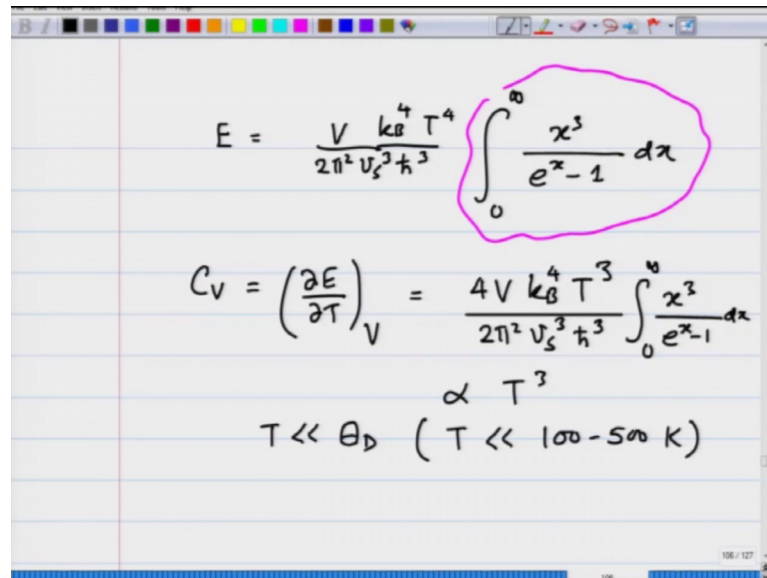 E = V k_B^4 T^4 / 2π² v_s³ ħ³ ∫_0^∞ x³ / e^x - 1 dx
C_V = (∂E/∂T)_V = 4V k_B^4 T³ / 2π² v_s³ ħ³ ∫_0^∞ x³ / e^x-1 dx
∝ T³
T << θ_D ( T << 100-500 K)
106 / 127